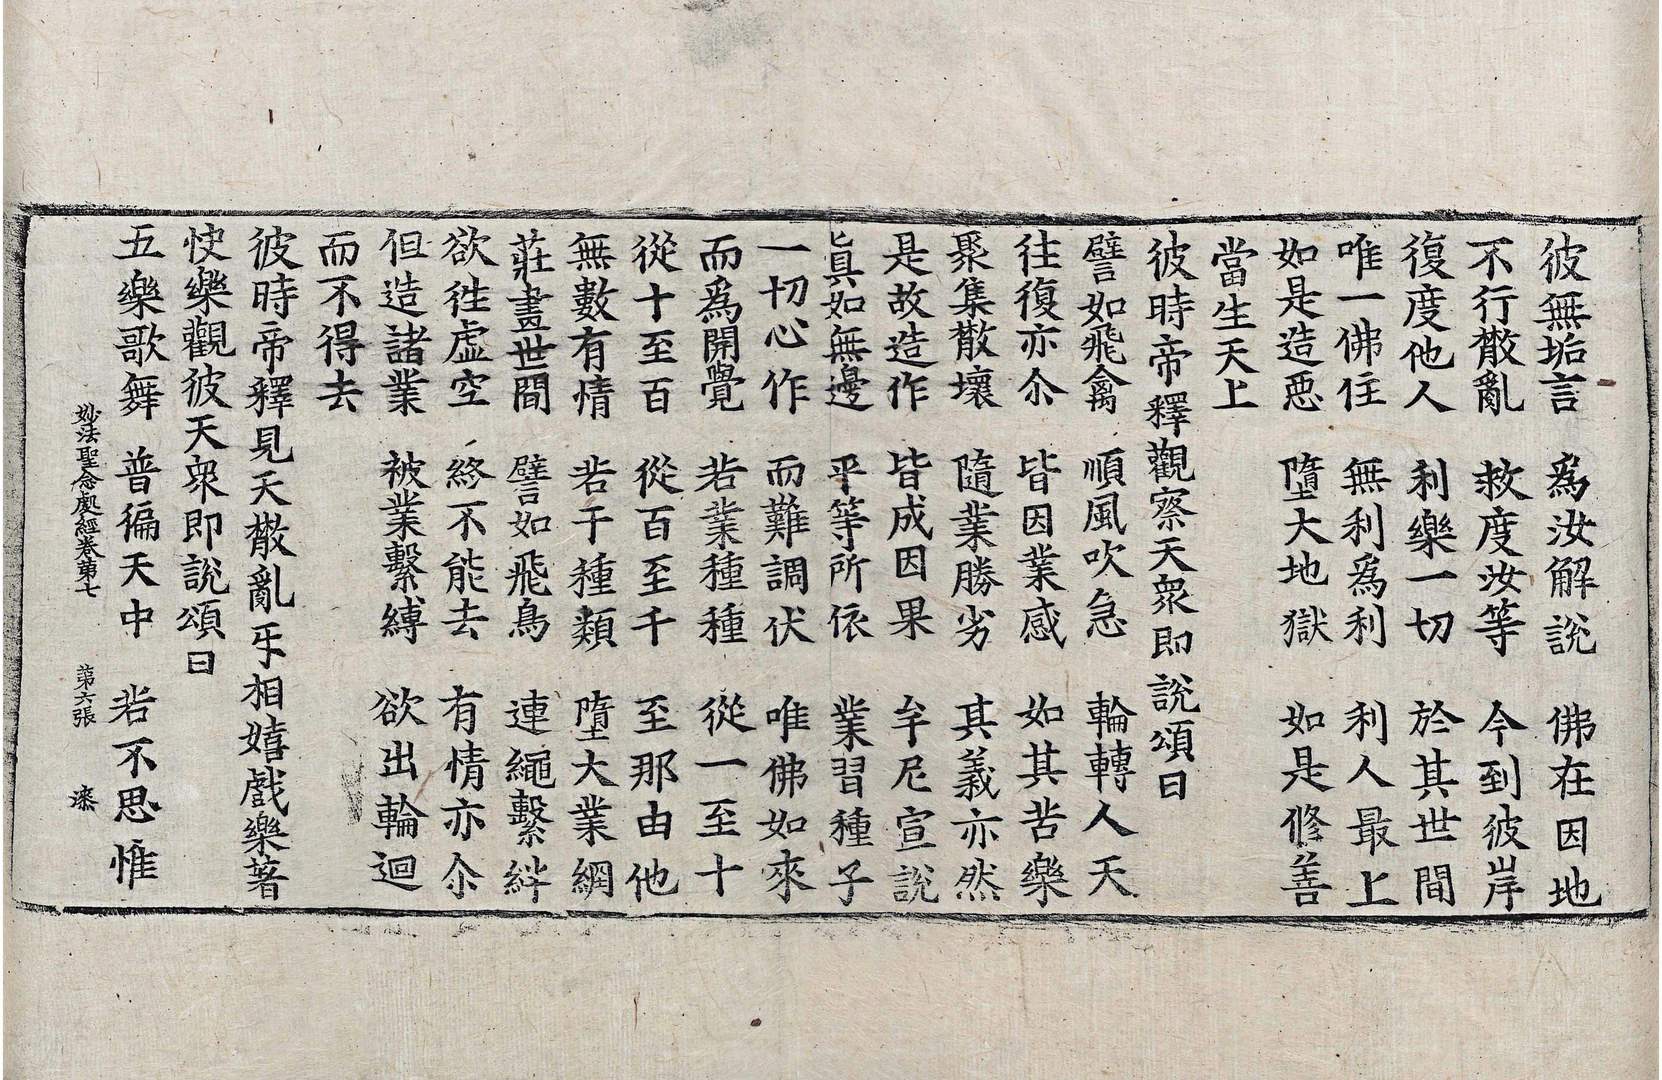 彼無垢言　為汝解說　佛在因地
不行散亂　救度汝等　今到彼岸
復度他人　利樂一切　於其世間
唯一佛住　無利為利　利人最上
如是造惡　墮大地獄　如是修善
當生天上
彼時帝釋觀察天衆即說頌曰
譬如飛禽　順風吹急　輪轉人天
往復亦尒　皆因業感　如其苦樂
聚集散壞　隨業勝劣　其義亦然
是故造作　皆成因果　牟尼宣說
眞如無邊　平等所依　業習種子
一切心作　而難調伏　唯佛如來
而為開覺　若業種種　從一至十
從十至百　從百至千　至那由他
無數有情　若干種類　墮大業網
莊畫世間　譬如飛鳥　連繩繫絆
欲徃虛空　終不能去　有情亦尒
但造諸業　被業繫縛　欲出輪迴
而不得去
彼時帝釋見天散亂乎相嬉戲樂著
快樂觀彼天衆即說頌曰
五樂歌舞　普徧天中　若不思惟
妙法聖念處經卷第七　第六張　漆